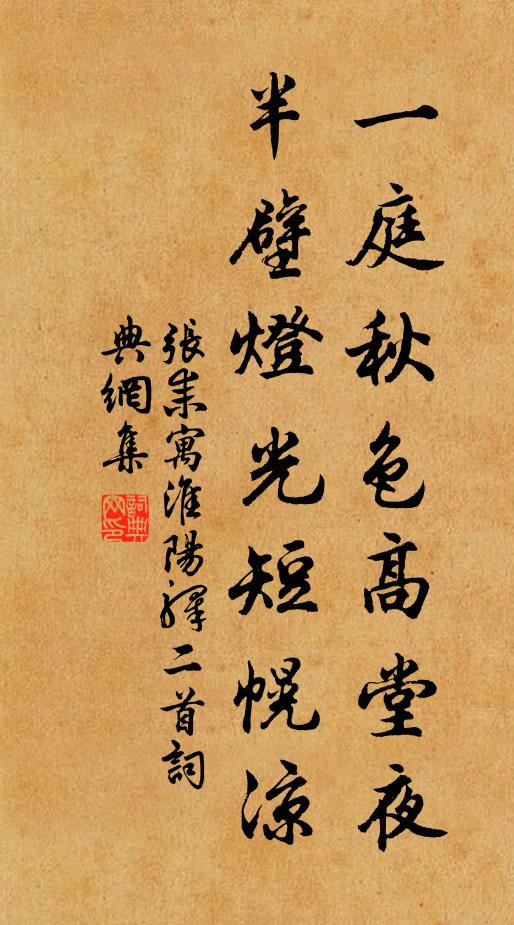 一庭秋色高堂夜
半壁燈光短幌涼
張耒寓淮陽驛二首詞
典網集
詞典